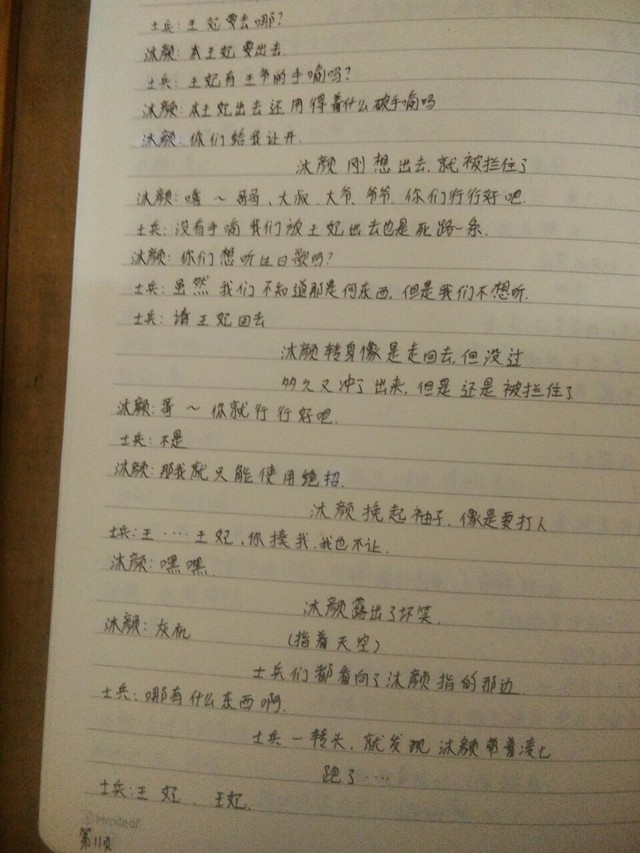 士兵：王妃要去哪？
沐颜：本王妃要出去
士兵：王妃有王爷的手喻吗？
沐颜：本王妃出去还用得着什么破手喻吗
沐颜：你们给我让开.
沐颜刚想出去,就被拦住了
沐颜：嘻～哥哥、大叔、大爷、爷爷,你们行行好吧.
士兵：没有手喻我们放王妃出去也是死路一条.
沐颜：你们想听生日歌吗？
士兵：虽然我们不知道那是何东西,但是我们不想听.
士兵：请王妃回去
沐颜转身像是走回去,但没过
多久又冲了出来,但是还是被拦住了
沐颜：哥～你就行行好吧.
士兵：不是
沐颜：那我就只能使用绝招.
沐颜挽起袖子,像是要打人
士兵：王····王妃,你揍我,我也不让.
沐颜：嘿嘿.
沐颜露出了坏笑.
沐颜：灰机 (指着天空)
士兵们都看向了沐颜指的那边
士兵：哪有什么东西啊.
士兵一转头,就发现沐颜带着凌七
跑了····
士兵：王妃、王妃.
Maxleaf
第11页